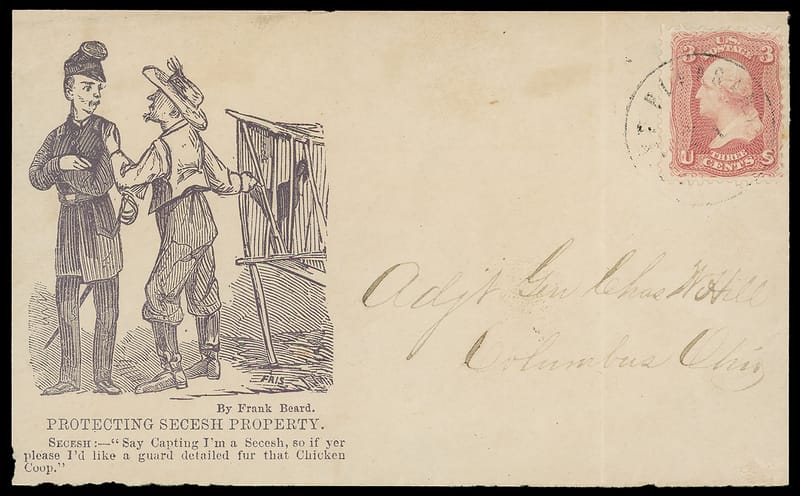 3 U.S. 3
POSTAGE
THREE
U CENTS S
Adjt Gen Chas W Hill
Columbus Ohio
FRIS
By Frank Beard.
PROTECTING SECESH PROPERTY.
SECESH:—“Say Capting I'm a Secesh, so if yer
please I'd like a guard detailed fur that Chicken
Coop.”